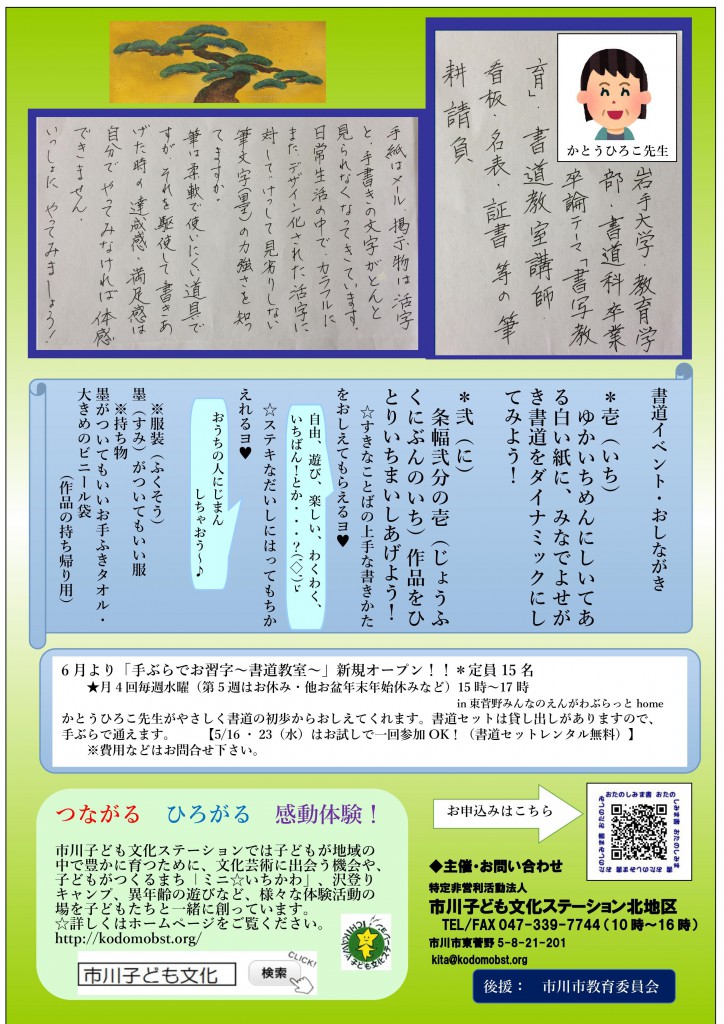 かとうひろこ先生
岩手大学 教育学
部・書道科卒業
卒論テーマ「書写教
育」・書道教室講師・
看板・名表・証書 等の筆
耕請負
手紙はメール、掲示物は活字
と、手書きの文字がとんと
見られなくなってきています。
日常生活の中で、カラフルに
また、デザイン化された活字に
対して、けっして見劣りしない
筆文字(墨)の力強さを知っ
てますか。
筆は柔軟で使いにくい道具で
すが、それを駆使して書きあ
げた時の達成感・満足感は
自分でやってみなければ体感
できません。
いっしょに やってみましょう!
書道イベント・おしながき
*壱(いち)
ゆかいちめんにしいてあ
る白い紙に、みんなでよせが
き書道をダイナミックにし
てみよう!
*弐(に)
条幅弐分の壱(じょうふ
くにぶんのいち)作品をひ
とりいちまいしあげよう!
☆すきなことばの上手な書きかた
をおしえてもらえるヨ♥
自由、遊び、楽しい、わくわく、
いちばん!とか・・・?(◇)ゞ
☆ステキなだいしにはってもちか
えれるヨ♥
おうちの人にじまん
しちゃおう～♪
※服装(ふくそう)
墨(すみ)がついてもいい服
※持ち物
墨がついてもいいお手ふきタオル・
大きめのビニール袋
(作品の持ち帰り用)
6月より「手ぶらでお習字～書道教室～」新規オープン!!*定員15名
★月4回毎週水曜(第5週はお休み・他お盆年末年始休みなど)15時～17時
in 東菅野みんなのえんがわぷらっと home
かとうひろこ先生がやさしく書道の初歩からおしえてくれます。書道セットは貸し出しがありますので、
手ぶらで通えます。 【5/16・23(水)はお試しで一回参加OK!(書道セットレンタル無料)】
※費用などはお問合せ下さい。
つながる ひろがる 感動体験!
市川子ども文化ステーションでは子どもが地域の
中で豊かに育つために、文化芸術に出会う機会や、
子どもがつくるまち「ミニ☆いちかわ」、沢登り
キャンプ、異年齢の遊びなど、様々な体験活動の
場を子どもたちと一緒に創っています。
☆詳しくはホームページをご覧ください。
http://kodomobst.org/
市川子ども文化
検索
CLICK!
お申込みはこちら
◆主催・お問い合わせ
特定非営利活動法人
市川子ども文化ステーション北地区
TEL/FAX 047-339-7744(10時～16時)
市川市東菅野 5-8-21-201
kita@kodomobst.org
後援: 市川市教育委員会